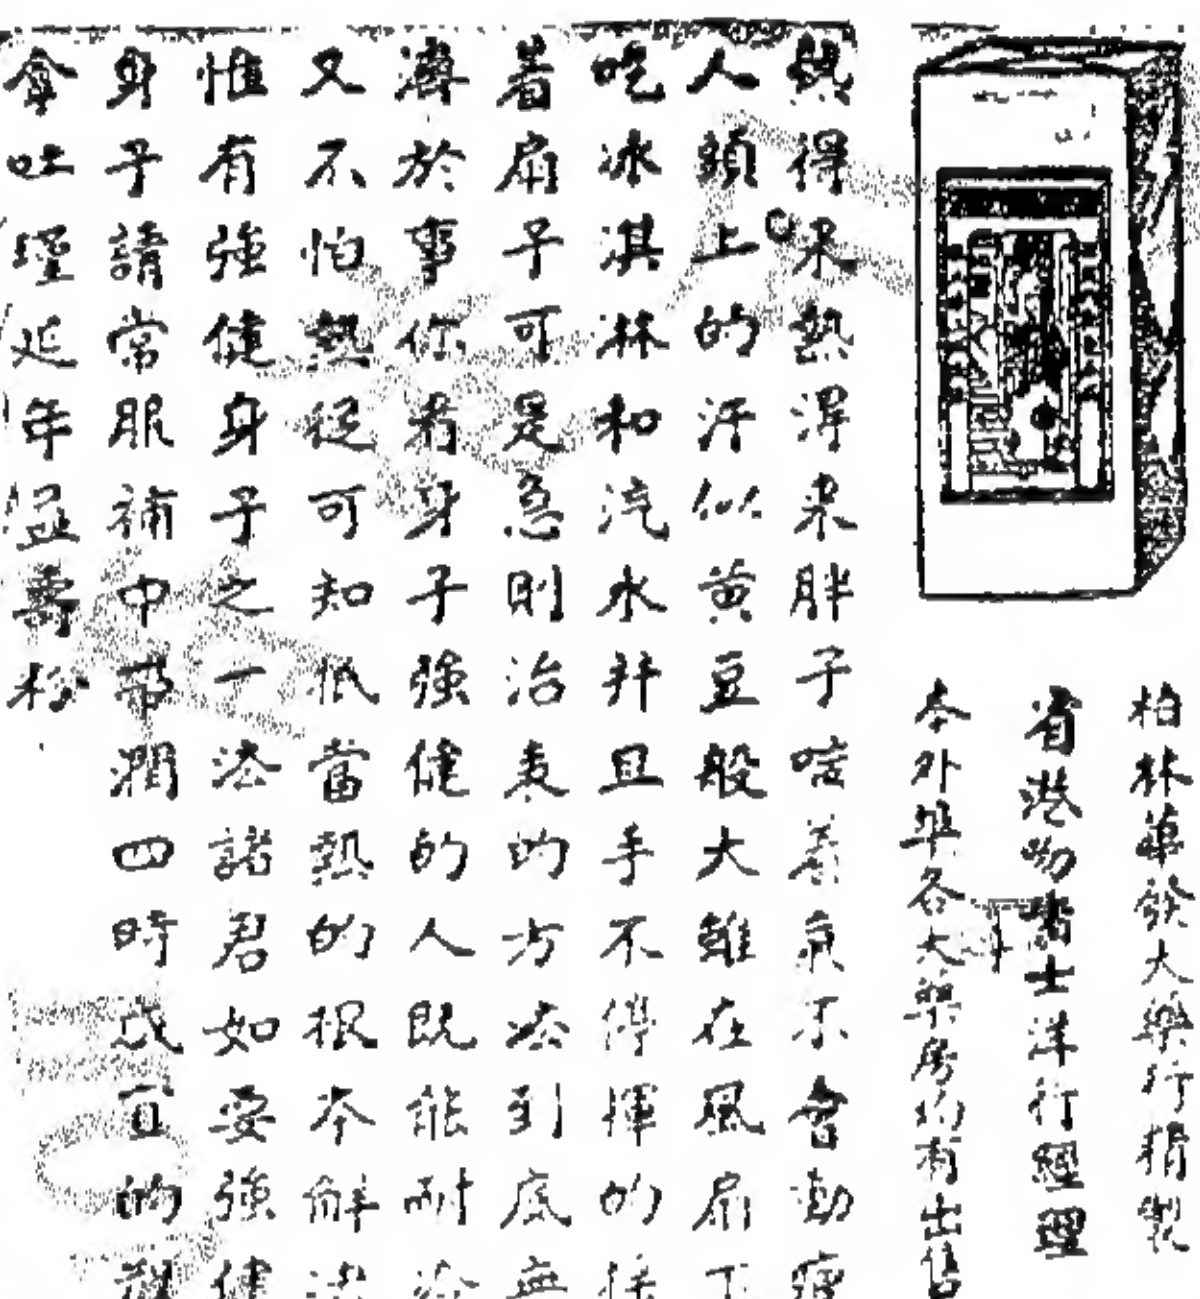 柏林華發大藥行精製
省港吻啫士洋行經理
本外埠各大藥房均有出售
熱得來熱得來胖子喘着氣不會動瘦
人頭上的汗似黃豆般大雖在風扇下
吃冰淇淋和汽水并且手不停揮的搖
着扇子可是急則治表的方法到底無
濟於事你看身子強健的人既能耐冷
又不怕熱從可知抵當熱的根本解法
惟有強健身子之一法諸君如要強健
身子請常服補中帶潤四時咸宜的
拿吐瑾延年益壽粉